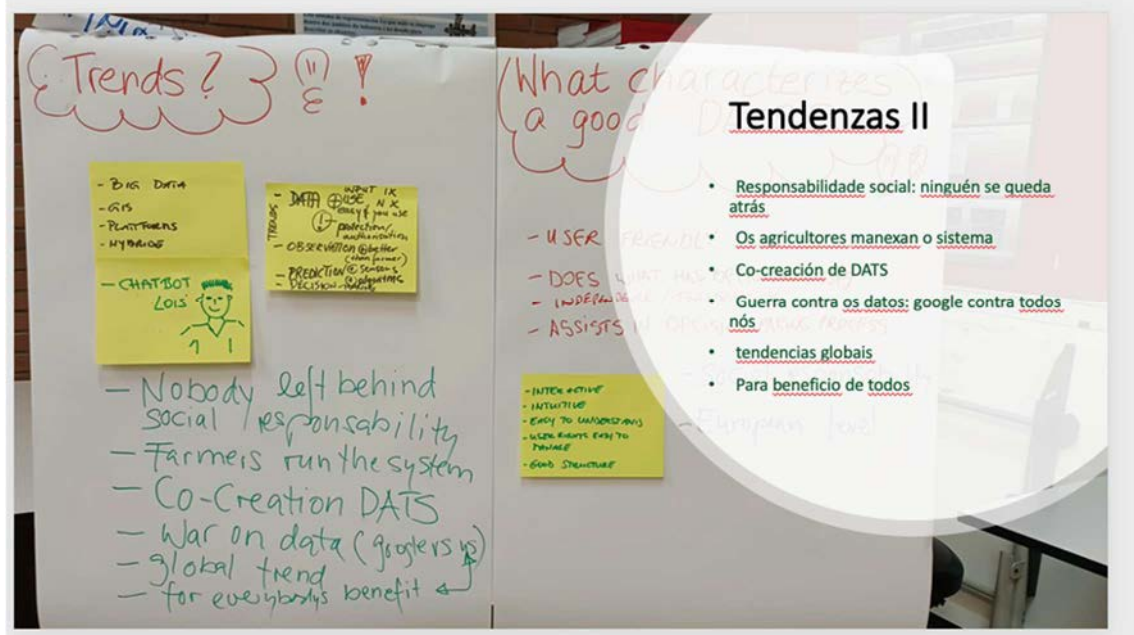 Trends?
!
- BIG DATA
- GIS
- PLATFORMS
- HYBRIDE
- CHATBOT
LOIS
TRENDS
- DATA
INPUT 1X
USE NX
easy if you use
protection/
authorisation
- OBSERVATION better
(than farmer)
- PREDICTION
- DECISION-MAKING
- Nobody left behind
social responsability
- Farmers run the system
- Co-Creation DATS
- War on data (google vs us)
- global trend
- for everybody's benefit
What characterizes
a good
- USER FRIENDLY
- DOES WHAT HAS
- ASSISTS IN DECISION PROCESS
- INTERACTIVE
- INTUITIVE
- EASY TO UNDERSTAND
- USER RIGHTS EASY TO
MANAGE
- GOOD STRUCTURE
- Social responsability
- European level
Tendenzas II
• Responsabilidade social: ninguén se queda
atrás
• Os agricultores manexan o sistema
• Co-creación de DATS
• Guerra contra os datos: google contra todos
nós
• tendencias globais
• Para beneficio de todos